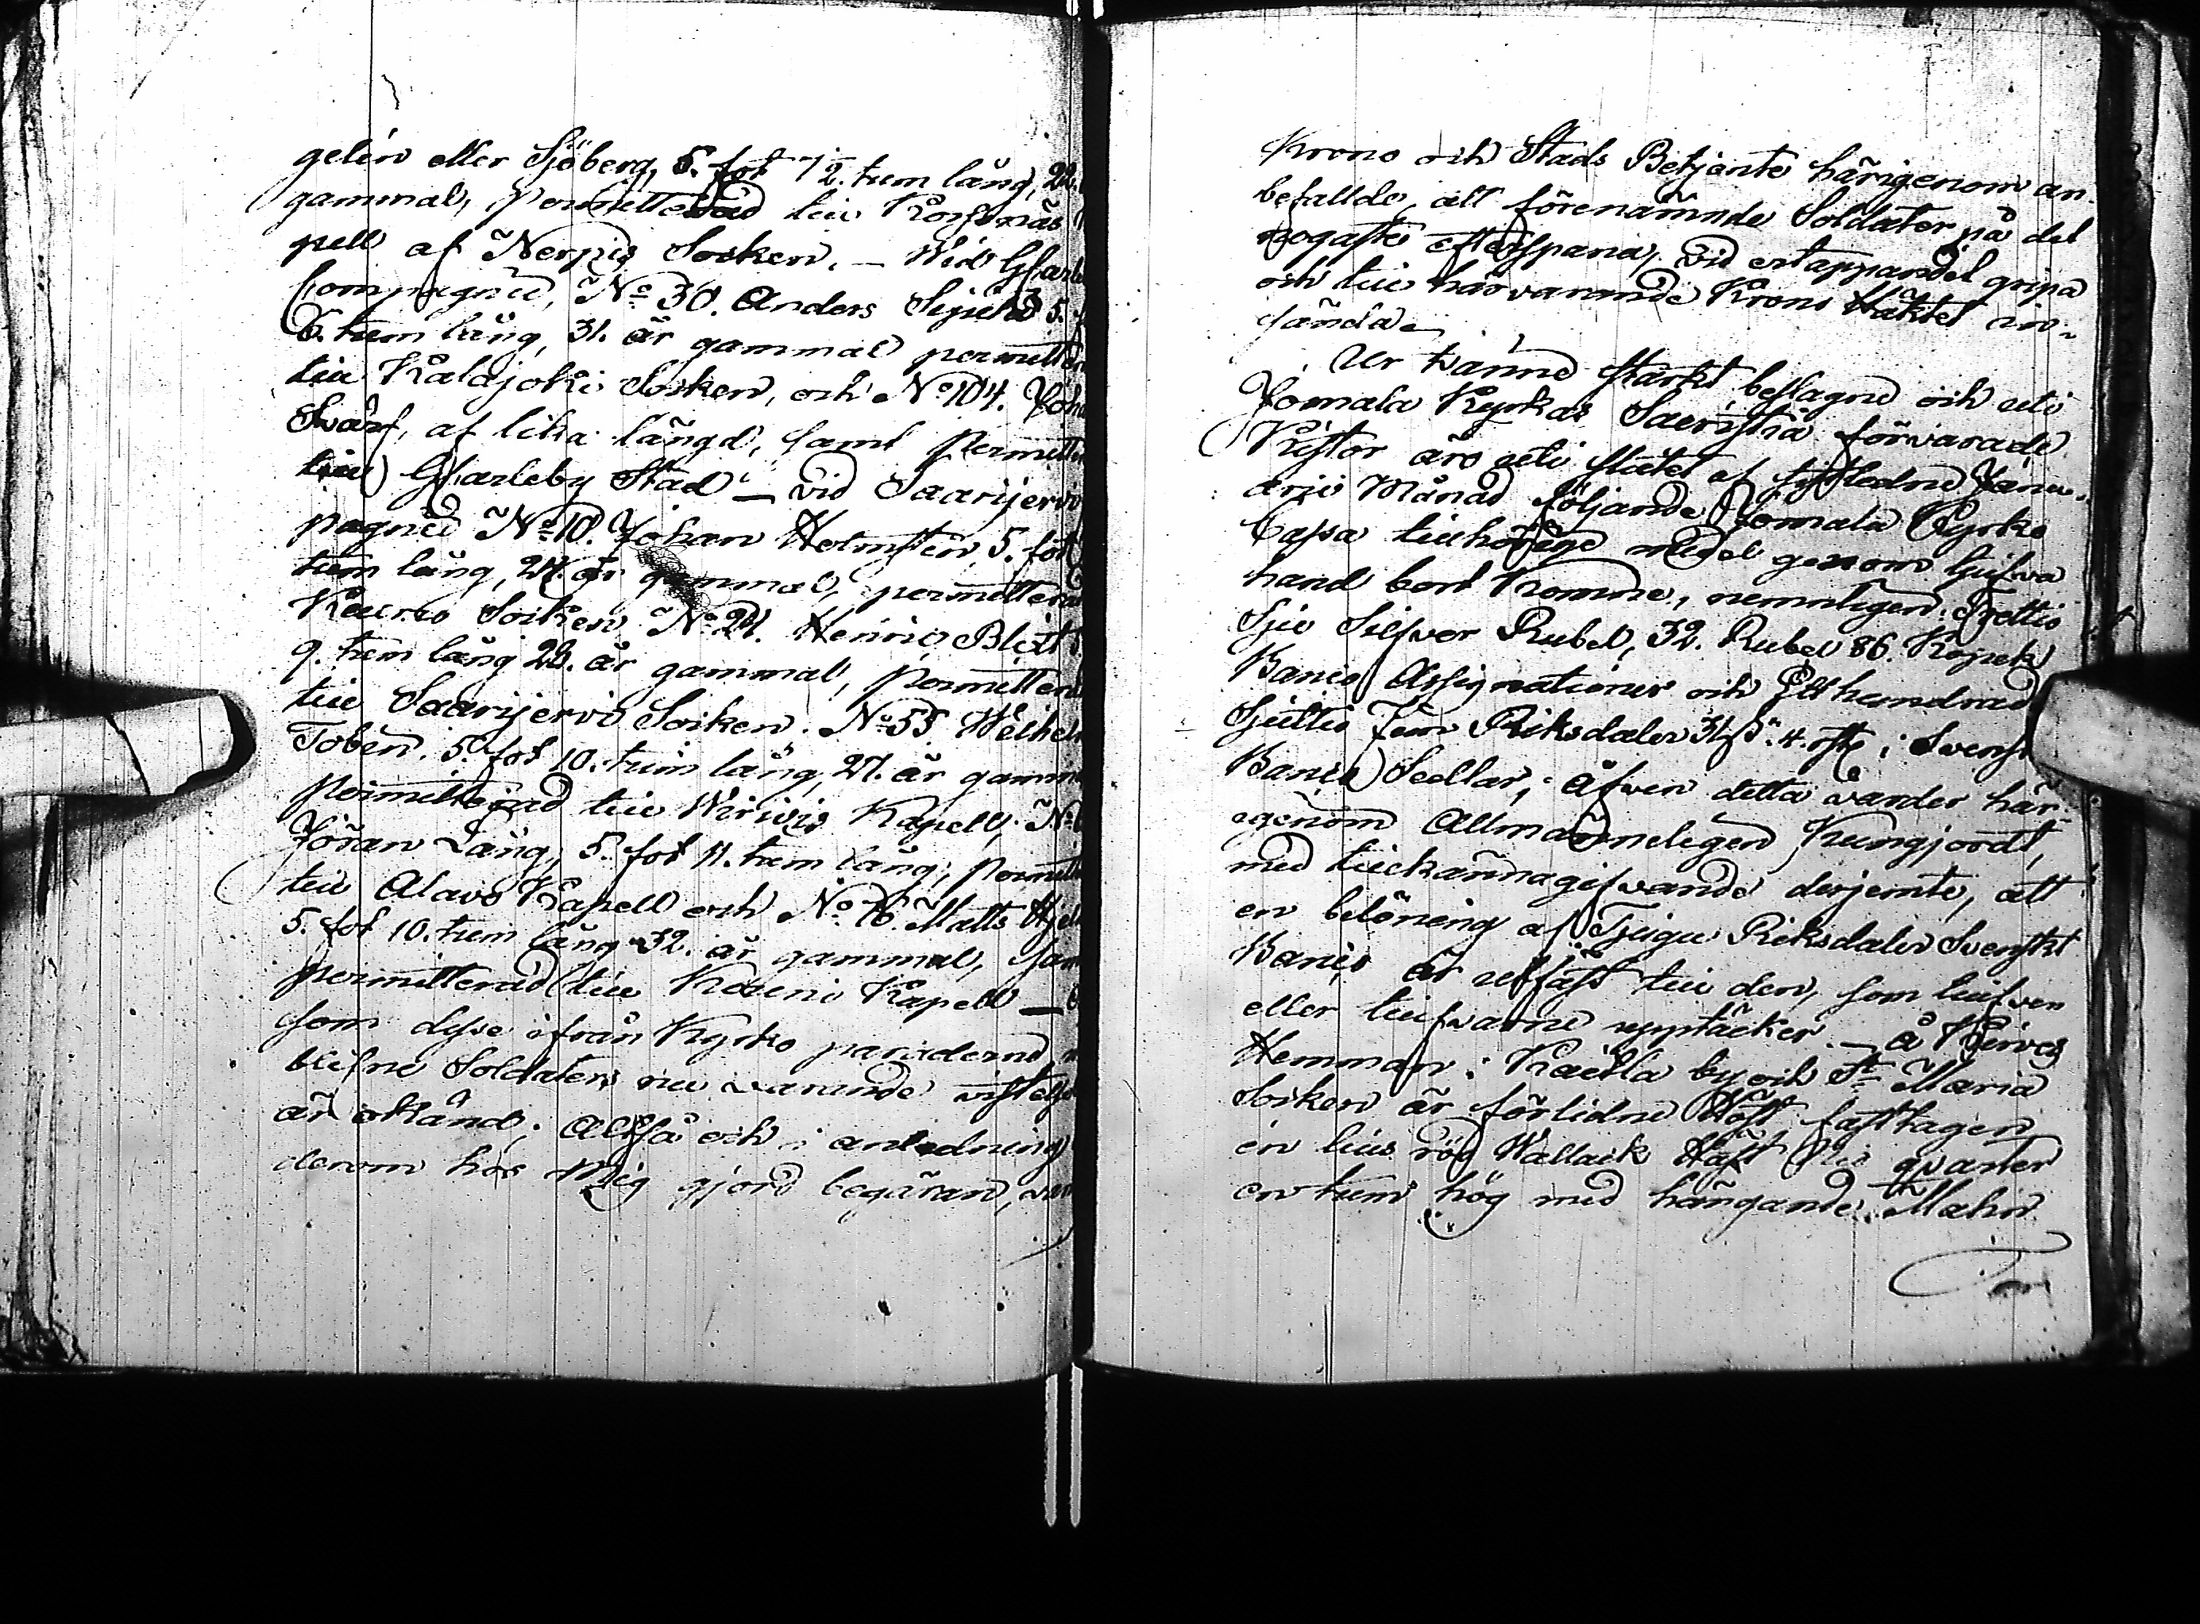 gelin eller Sjöberg, 5. fot 7½. tum lång, 22.
gammal, permitterad till Korsnäs
pell af Nerpis Socken. — Wid Gkarle
Compagnie, N:o 30. Anders Sejvel 5.
6. tum lång, 31. år gammal permitter
till Kalajoki Socken, och N:o 104. Joh
Svärf, af lika längd, samt permitte
till Gkarleby Stad — vid Saarijervi
pagnie N:o 10. Johan Holmsten, 5. fot
tum lång, 24. år gammal, permittera
Socken N:o 24. Henric Blixt
9. tum lång 28. år gammal, permittera
till Saarijervi Socken. N:o 55 Wilhel
Toben. 5. fot 10. tum lång, 27. år gamm
permitterad till Wirdois Kapell, N:o
Jöran Lång, 5. fot 11. tum lång, permitt
till Alavo Kapell och N:o 76. Matts Hjel
5. fot 10. tum lång 32. år gammal, sam
permitterad till Kapell —
som desse ifrån Kyrko paraderne
blifne Soldaters nu varande vistelse
är okänd; Altså och i anledning
derom hos Mig gjord begäran, var
Krono och Stads Betjente härigenom an-
befallde, att förenämnde Soldater på det
nogaste efterspana, vid ertappandet gripa
och till härvarande Krono Häktet in-
sända.
Ur tvänne starkt beslagne och uti
Jomala Kyrkas Sacristia förvarade
Kistor äro uti slutet af sistledne Janu-
arii Månad följande Jomala Kyrko
Cassa tillhörige medel genom tjufva
hand bort komne, nemnligen Trettio
Sju Silfver Rubel, 32. Rubel 86. Kopek
Banco Assignationer och Ett hundrad
Sjuttio Fem Riksdaler 31 ß. 4. rst. i Svensk
Banco Sedlar, äfven detta varder här-
igenom Allmänneligen Kungjordt,
med tillkännagifvande derjemte, att
en belöning af Tjugu Riksdaler Svenskt
Banco är utfäst till den, som tjufven
eller tjufvarne upptäcker. — å Hirvas
Hemman i Kaerla by och S:t Maria
Socken är förlidne Höst fasttagen
en ljus röd Wallack Häst nio qvarter
en tum hög med hängande Mahn